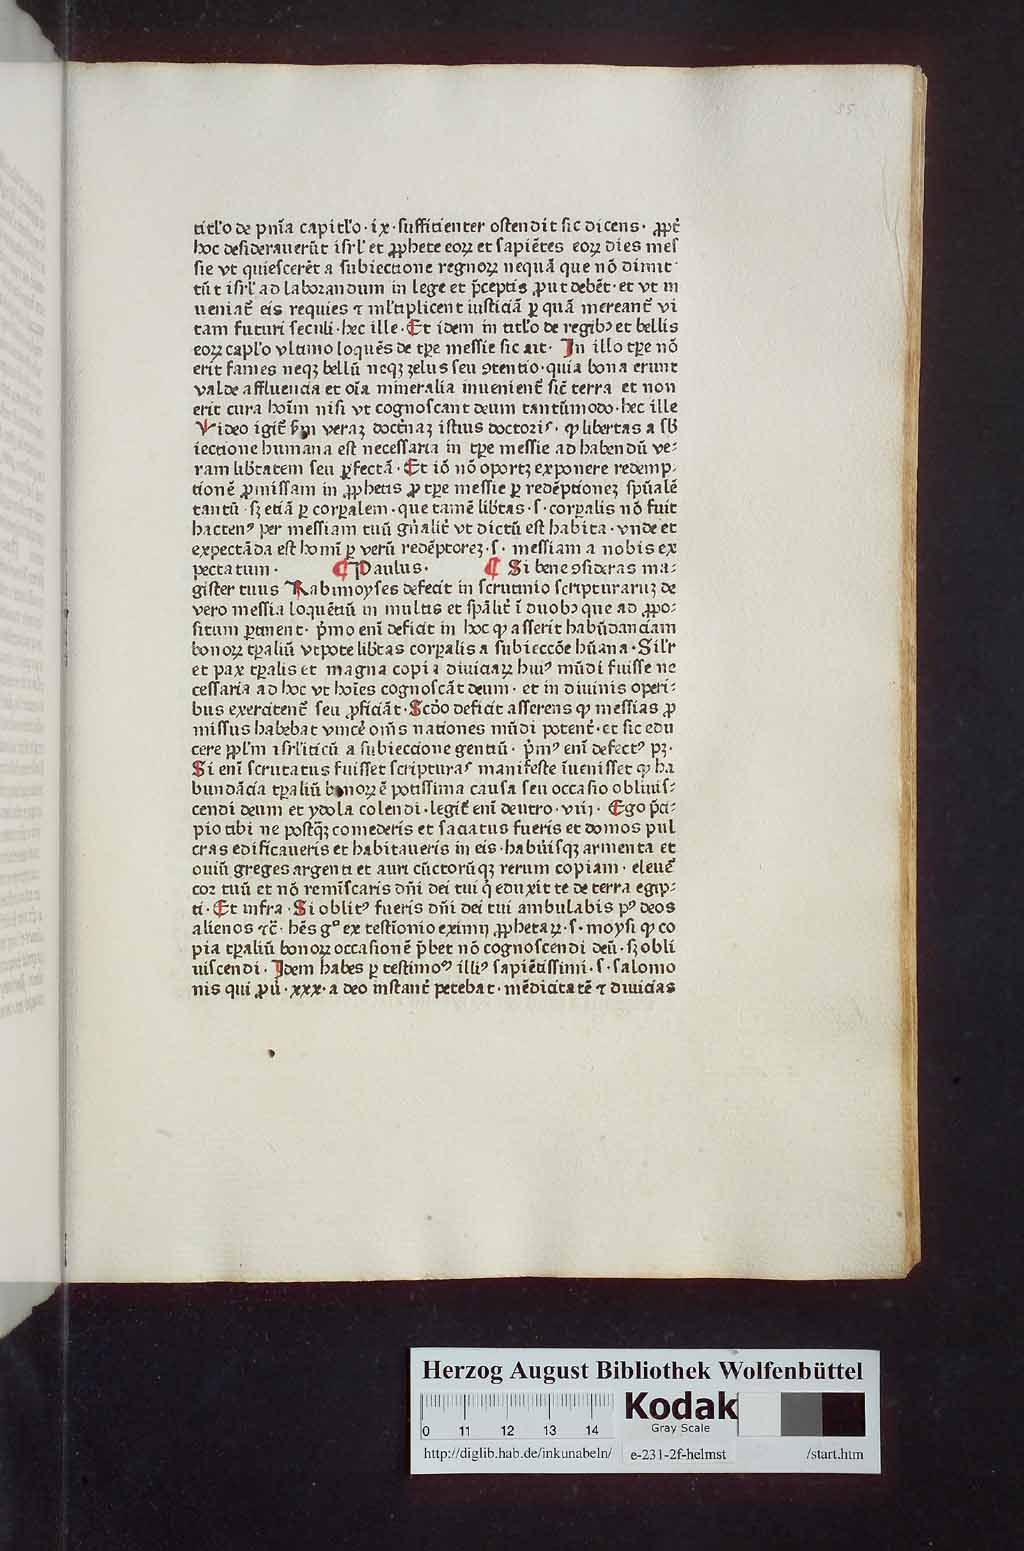 85
titl'o de pnīa capitl'o · ix · suffitienter ostendit sic dicens · ꝓpt̛
hoc desiderauerūt isrl' et ꝓphete eoꝝ et sapiētes eoꝝ dies mes
sie vt quiescerēt a subiectione regnoꝝ nequā que nō dimit
tūt isrl' ad laborandum in lege et p̄ceptis ꝓut debēt · et vt in
ueniat̄ eis requies ⁊ ml'tiplicent iusticiā ꝑ quā mereant̄ vi
tam futuri seculi · hec ille · Et idem in titl'o de regibꝫ et bellis
eoꝝ capl'o vltimo loquēs de tꝑe messie sic ait · In illo tꝑe nō
erit fames neqꝫ bellū neqꝫ zelus seu ꝯtentio · quia bona erunt
valde affluencia et oīa mineralia inuenient̄ sic̄ terra et non
erit cura hoīm nisi vt cognoscant deum tantūmodo · hec ille
Video igit̄ s̄m veraꝫ doct̄naꝫ istius doctoris · ꝙ libertas a sb̄
iectione humana est necessaria in tꝑe messie ad habendū ve⸗
ram lib̄tatem seu ꝑfectā · Et iō nō oportꝫ exponere redemp⸗
tionē ꝓmissam in ꝓphetis ꝓ tꝑe messie ꝑ redēptioneꝫ spūalē
tantū · sꝫ etiā ꝑ corꝑalem · que tamē lib̄tas · s · corꝑalis nō fuit
hactenꝰ per messiam tuū gn̄alit̄ vt dictū est habita · vnde et
expectāda est homī ꝑ verū redēptoreꝫ · s · messiam a nobis ex
pectatum · ¶ Paulus · ¶ Si bene ꝯsideras ma⸗
gister tuus Rabimoyses defecit in scrutinio scripturaruꝫ de
vero messia loquētiū in multis et spālit̄ ī duobꝫ que ad ꝓpo⸗
situm ꝑtinent · p̄mo enī deficit in hoc ꝙ asserit habūdanciam
bonoꝝ tꝑaliū vtpote lib̄tas corꝑalis a subieccōe hūana · Sil'r
et pax tꝑalis et magna copia diuiciaꝝ huiꝰ mūdi fuisse ne
cessaria ad hoc vt hoīes cognoscāt deum · et in diuinis operi⸗
bus exercitent̄ seu ꝓficiāt · Scōo deficit asserens ꝙ messias ꝓ
missus habebat vincē om̄s nationes mūdi potent̄ · et sic edu
cere ppl'm isrl'iticū a subieccione gentiū · p̄mꝰ enī defectꝰ pꝫ ·
Si enī scrutatus fuisset scripturas manifeste īuenisset ꝙ ha
bundācia tꝑaliū bonoꝝ ē potissima causa seu occasio obliuis⸗
cendi deum et ydola colendi · legit̄ enī deutro · viij · Ego p̄ci⸗
pio tibi ne postq̄ꝫ comederis et saciatus fueris et domos pul
cras edificaueris et habitaueris in eis · habūisqꝫ armenta et
ouiū greges argenti et auri cūctorūqꝫ rerum copiam · eleuet̄
cor tuū et nō remīscaris dn̄i dei tui q̄ eduxit te de terra egip⸗
ti · Et infra · Si oblitꝰ fueris dn̄i dei tui ambulabis pꝰ deos
alienos ⁊c̄ · hēs gͦ ex testīonio eximij ꝓphetaꝝ · s · moysi ꝙ co
pia tꝑaliū bonoꝝ occasionē p̄bet nō cognoscendi deū · sꝫ obli
uiscendi · Idem habes ꝑ testimoꝰ illiꝰ sapiētissimi · s · salomo
nis qui ꝓū · xxx · a deo instant̄ petebat · mēdicitatē ⁊ diuicias
Herzog August Bibliothek Wolfenbüttel
0 11 12 13 14
Kodak
Gray Scale
http://diglib.hab.de/inkunabeln/ e-231-2f-helmst /start.htm